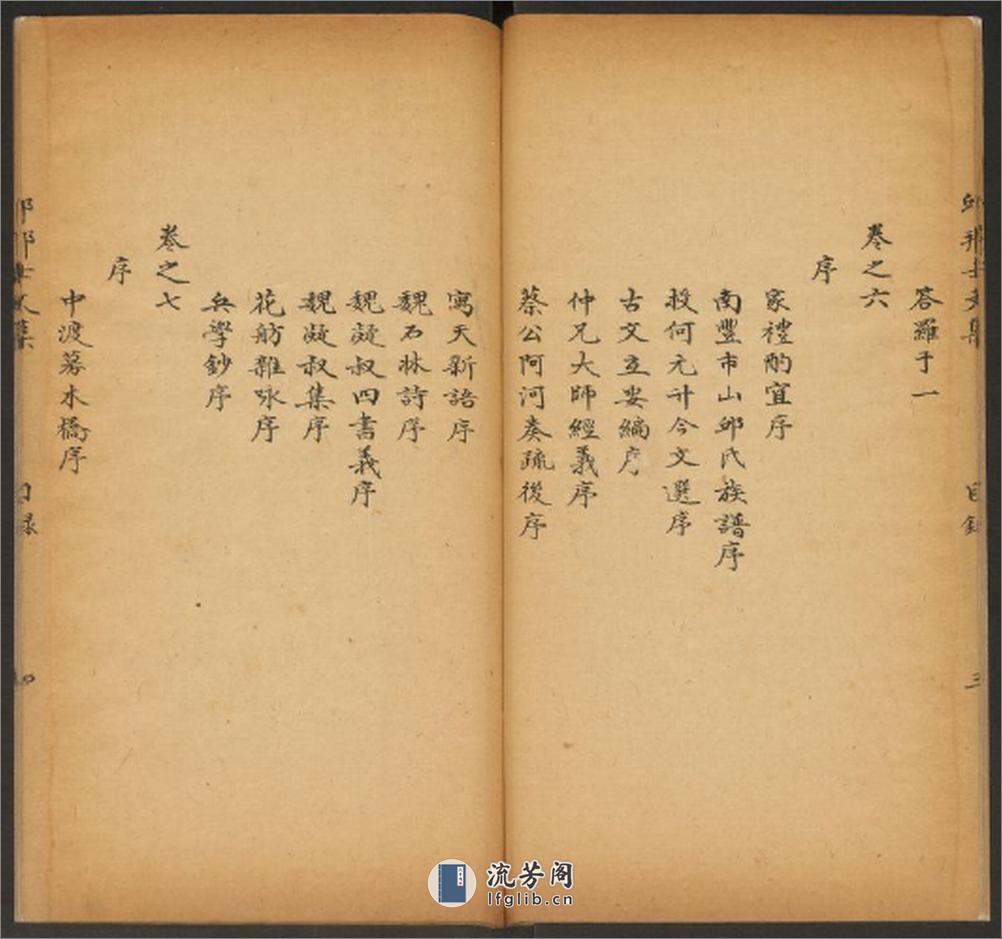 答羅于一
卷之六
序
家禮酌宜序
南豐市山邱氏族譜序
投何元升今文選序
古文立安編序
仲兄大師經義序
蔡公阿河奏疏後序
目錄
三
寓天新語序
魏石牀詩序
魏凝叔四書義序
魏凝叔集序
花舫雜咏序
兵學鈔序
卷之七
序
中渡募木橋序
目錄
四
流芳阁
lfglib.cn